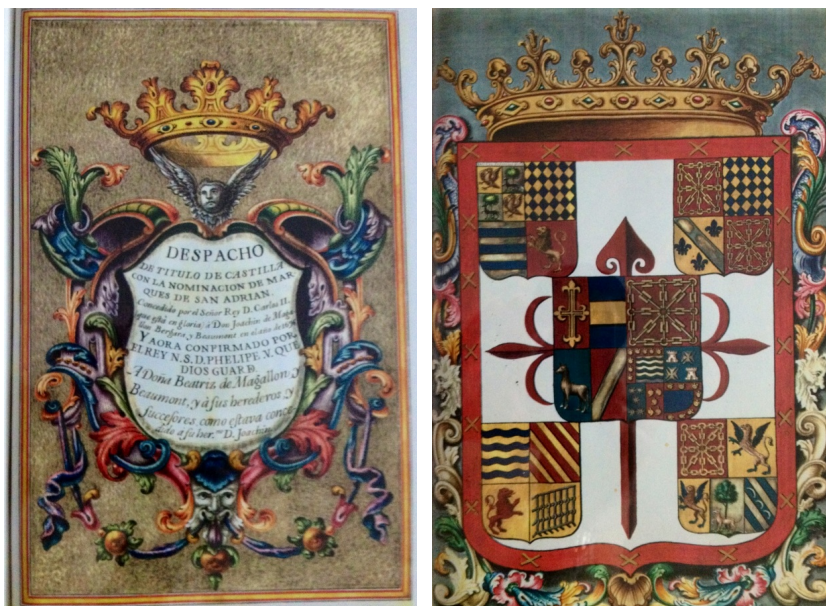 DESPACHO
DE TITULO DE CASTILLA
CON LA NOMINACION DE MAR
QUES DE SAN ADRIAN.
Concedido por el Señor Rey D. Carlos II.
que está en gloria, à Don Joachin de Maga
llon Bergara, y Beaumont en el año de
Y AORA CONFIRMADO POR
EL REY N. S. D. PHELIPE. V. QUE
DIOS GUARD.
A Doña Beatris de Magallon, y
Beaumont, y à sus herederos y
successores, como estava conce
à su her.no D. Joachin